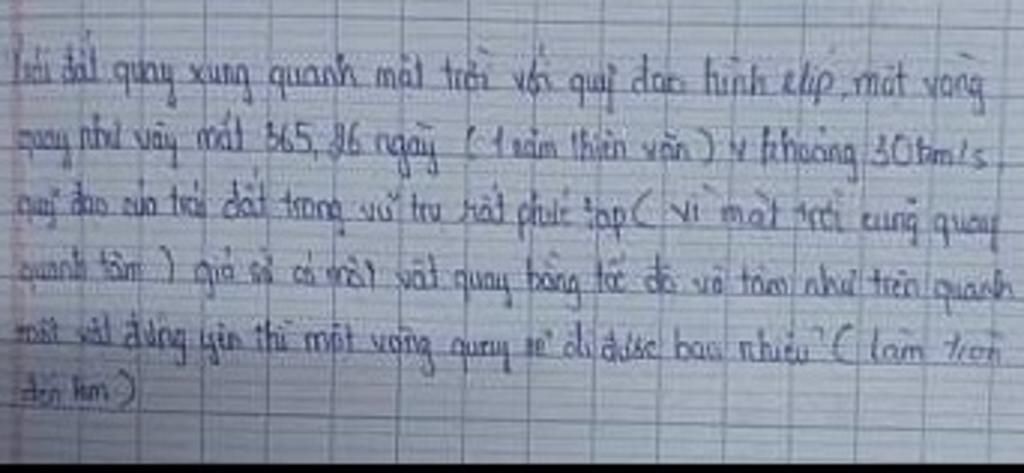 Trái đất quay xung quanh mặt trời với quỹ đạo hình elip, một vòng
quay như vậy mất 365,26 ngày (1 năm thiên văn) v khoảng 30km/s
quỹ đạo của trái đất trong vũ trụ rất phức tạp (vì mặt trời cũng quay
quanh tâm) giả sử có một vật quay bằng tốc độ và tâm như trên quanh
một vật đứng yên thì một vòng quay sẽ đi được bao nhiêu? (làm tròn
đến km)